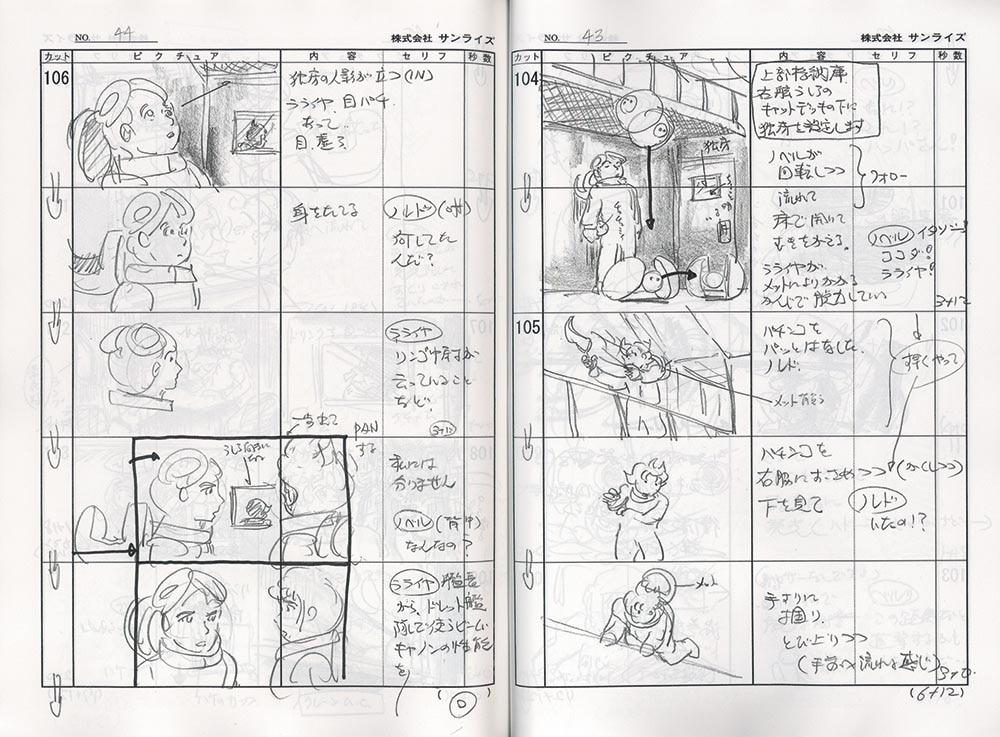 NO. 44
株式会社 サンライズ
カット
ピクチュア
内容
セリフ
秒数
106
独房の人影が立つ(IN)
ララィヤ、目パチ
あって
身をたてる
ノルド
何してた
んだ?
ララィヤ
リンゴ
云っていること
など、
(3+12)
PAN
する
私には
分りません
ノベル (背中)
なんなの?
ララィヤ 艦長
から、ドレット艦
隊で使うビーム
キャノンの性能
を
( 0 )
NO. 43
株式会社 サンライズ
カット
ピクチュア
内容
セリフ
秒数
104
上部格納庫
右脇うしろの
キャットデッキの下に
独房を設定します
独房
ノベルが
回転しつつ
フォロー
流れて
床で開いて
むきをかえる。
ノベル イタゾー!
ココダ!
ララィヤ!
ララィヤが
メットによりかかる
かんじで脱力してい
3+12
105
パチンコを
パッとはなした
ノルド、
早くやって
メット
パチンコを
右脇におさめつつ (かくしつつ)
下を見て
ノルド
いたの!?
メット
手すりに
掴り、
とび上りつつ
3+0
(6+12)